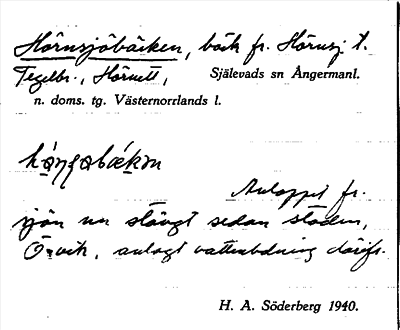 Hörnsjöbäcken, bäck fr. Hörnsj. t.
Tegelbr., Hörnett, Själevads sn Ångermanl.
n. doms. tg. Västernorrlands l.
Avloppet fr.
sjön nu stängt sedan staden,
Ö-vik, anlagt vattenledning därifr.
H. A. Söderberg 1940.